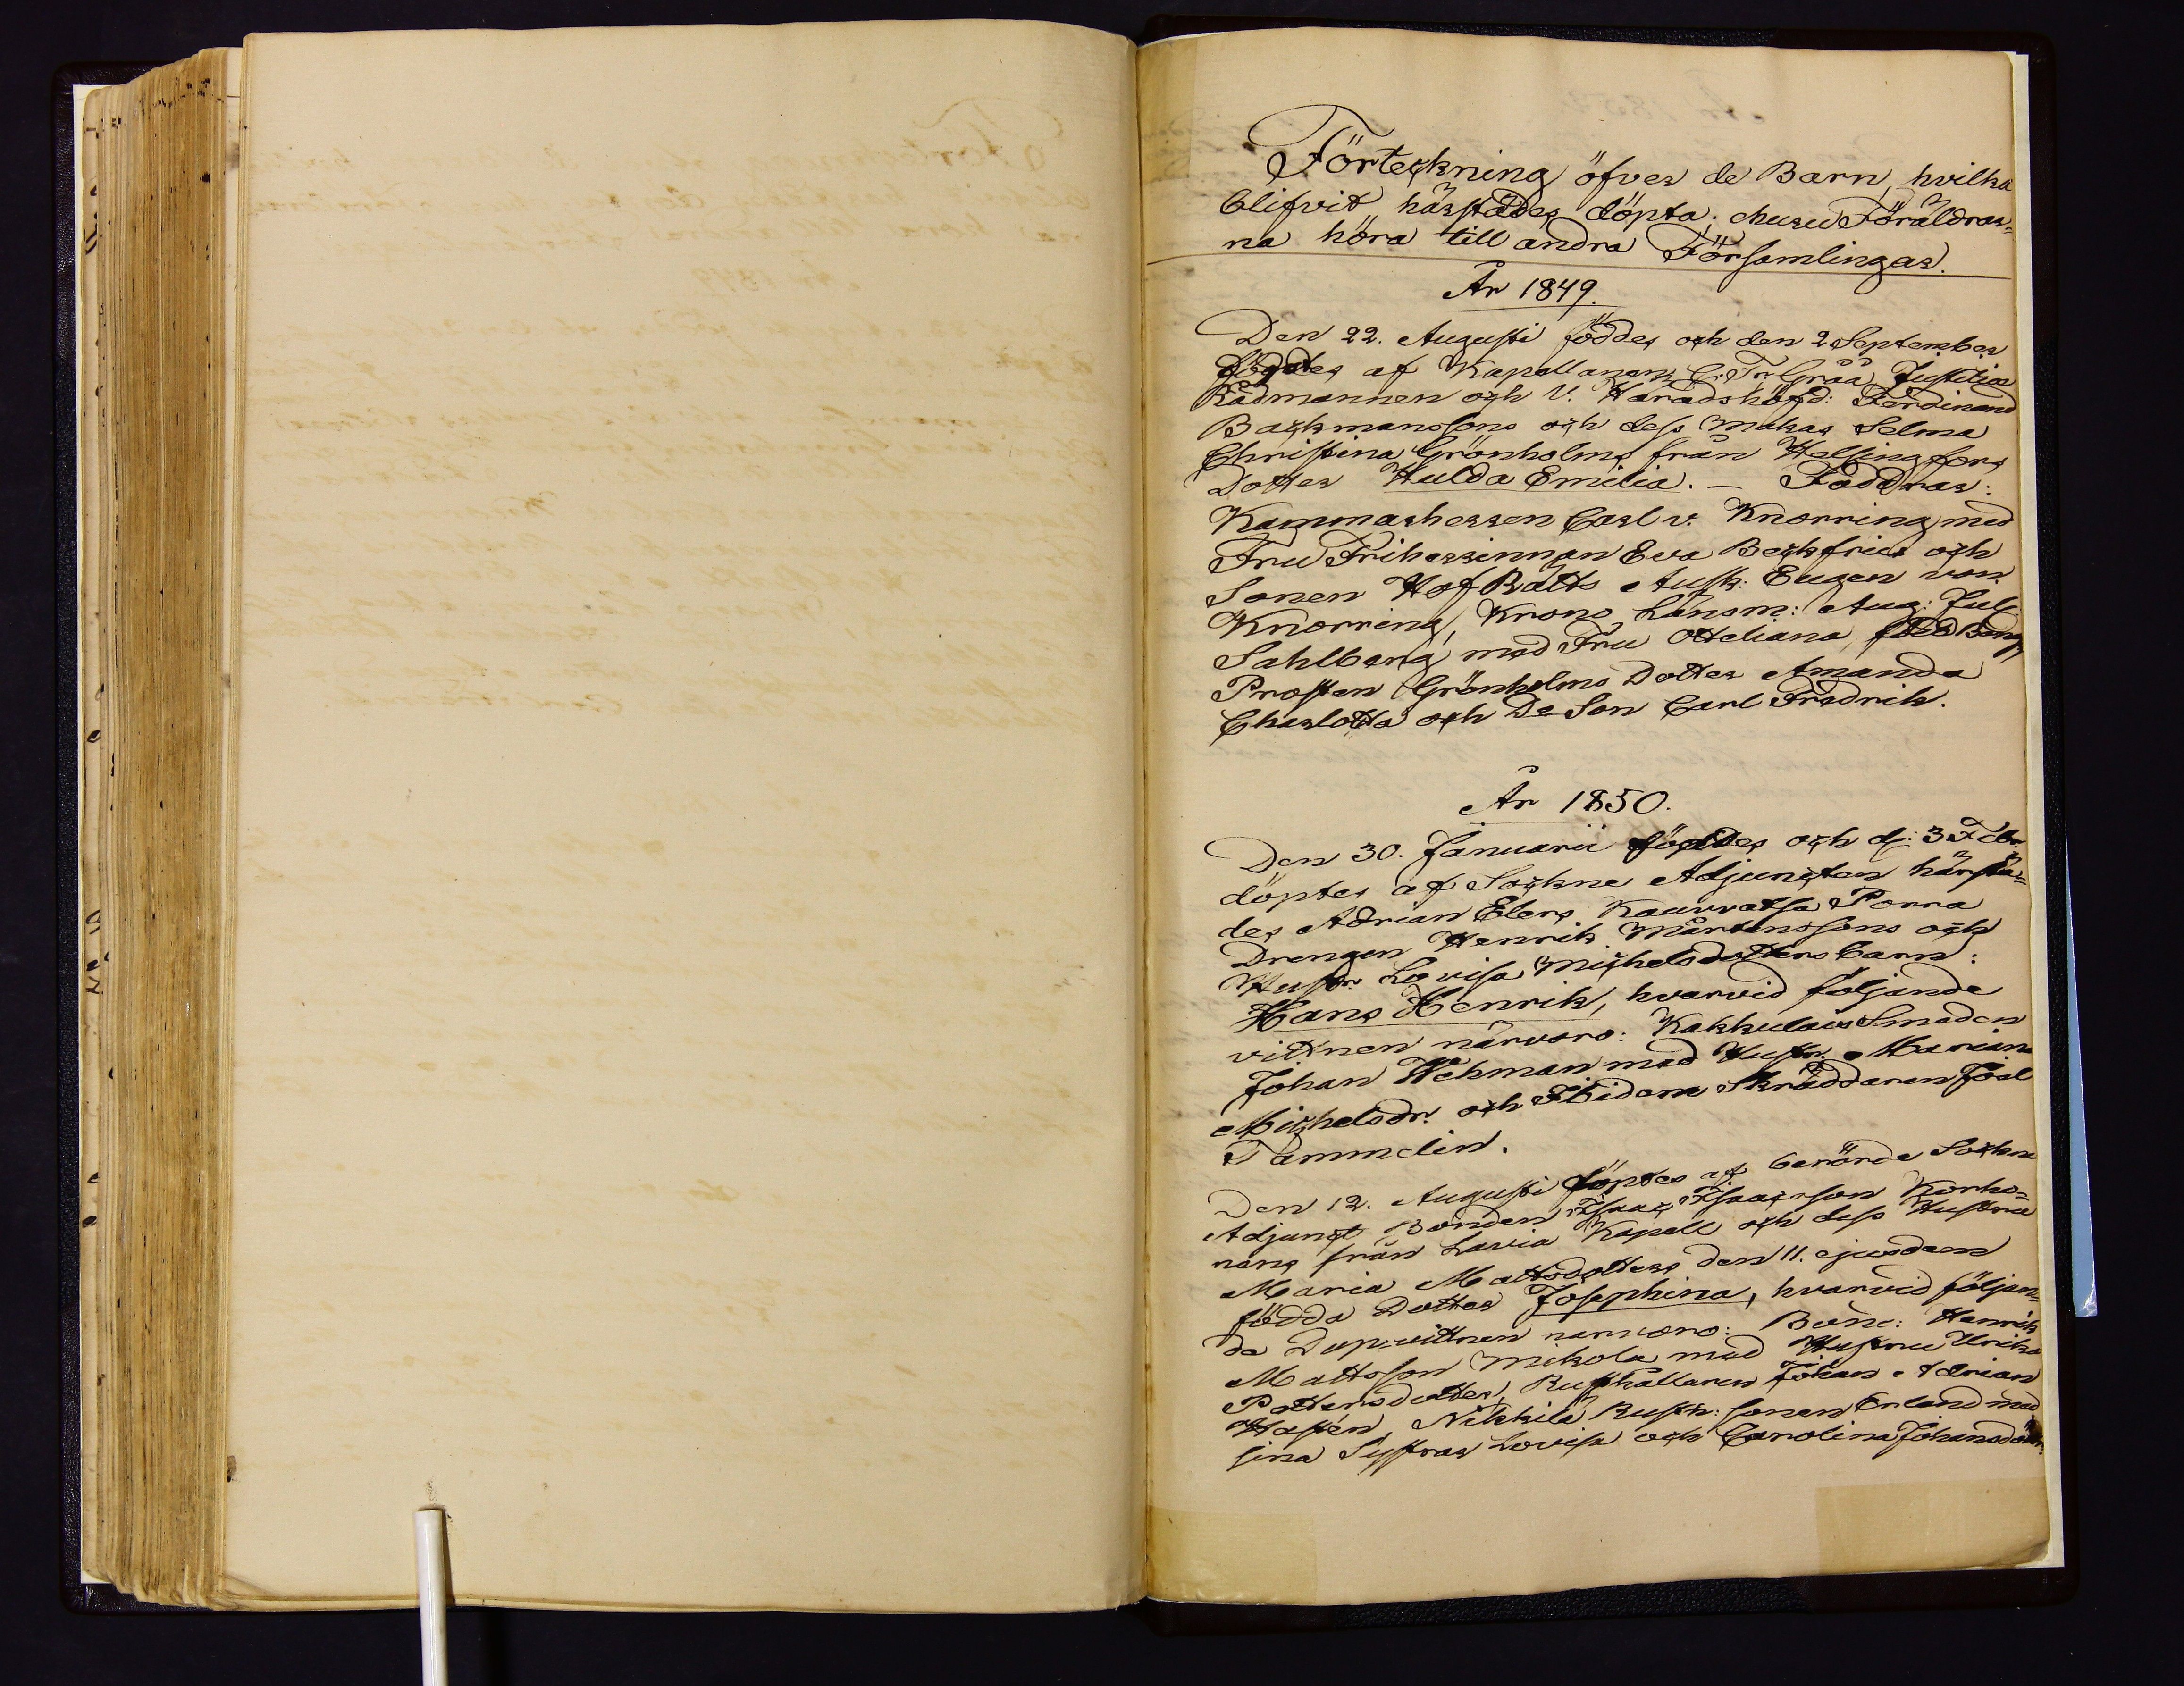 Förteckning öfver de Barn, hvilka
blifvit härstädes döpta, churu Föräldrar=
na höra till andra Församlingar.
År 1849.
Den 22. Augusti föddes och den 2 September
döptes af Kapellanen C. Fr. Gråå Justitiæ
Rådmannen och V. Häradshöfd: Ferdinand
Backmanssons och dess Makas Selma
Christina Grönholms från Helsingfors
Dotter Hulda Emilia. — Faddrar:
Kammarherren Carl v. Knorring med
Fru Friherrinnan Eva Beckfries och
Sonen HofRätts Ausk: Eugen von
Knorring, Krono Länsm: Aug: Jul:
Sahlberg med Fru Otteliana, född
Prosten Grönholms Dotter Amanda
Charlotta och De Son Carl Fredrik.
År 1850.
Den 30. Januarii föddes och d: 3 Febr.
döptes af Sockne Adjuncten härstä=
des Adrian Elers Kauvvatsa Porra
Drengen Henrik Mårtenssons och
Hustr. Lovisa Michelsdotters barn:
Hans Henrik, hvarvid följande
vittnen närvoro: Kakkulais Smeden
Johan Wekman med Hustr. Mariana
Michelsdr. och Ibidem Skräddaren Joel
Tammelin.
Den 12. Augusti döptes af berörde Sockne
Adjunct, Bonden Isaac Isaacsson Korho=
nens från Lavia Kapell och dess Hustru
Maria Mattsdotters den 11. ejusdem
födda Dotter Josephina, hvarvid följan=
de Dopvittnen närvoro: Bonc: Henrik
Mattsson Mikola med Hustru Ulrika
Pettersdotter, Rusthållaren Johan Adrian
Hasten, Nikkilä Rusth: sonen Erland med
sina Systrar Lovisa och Carolina Johansdöttr: